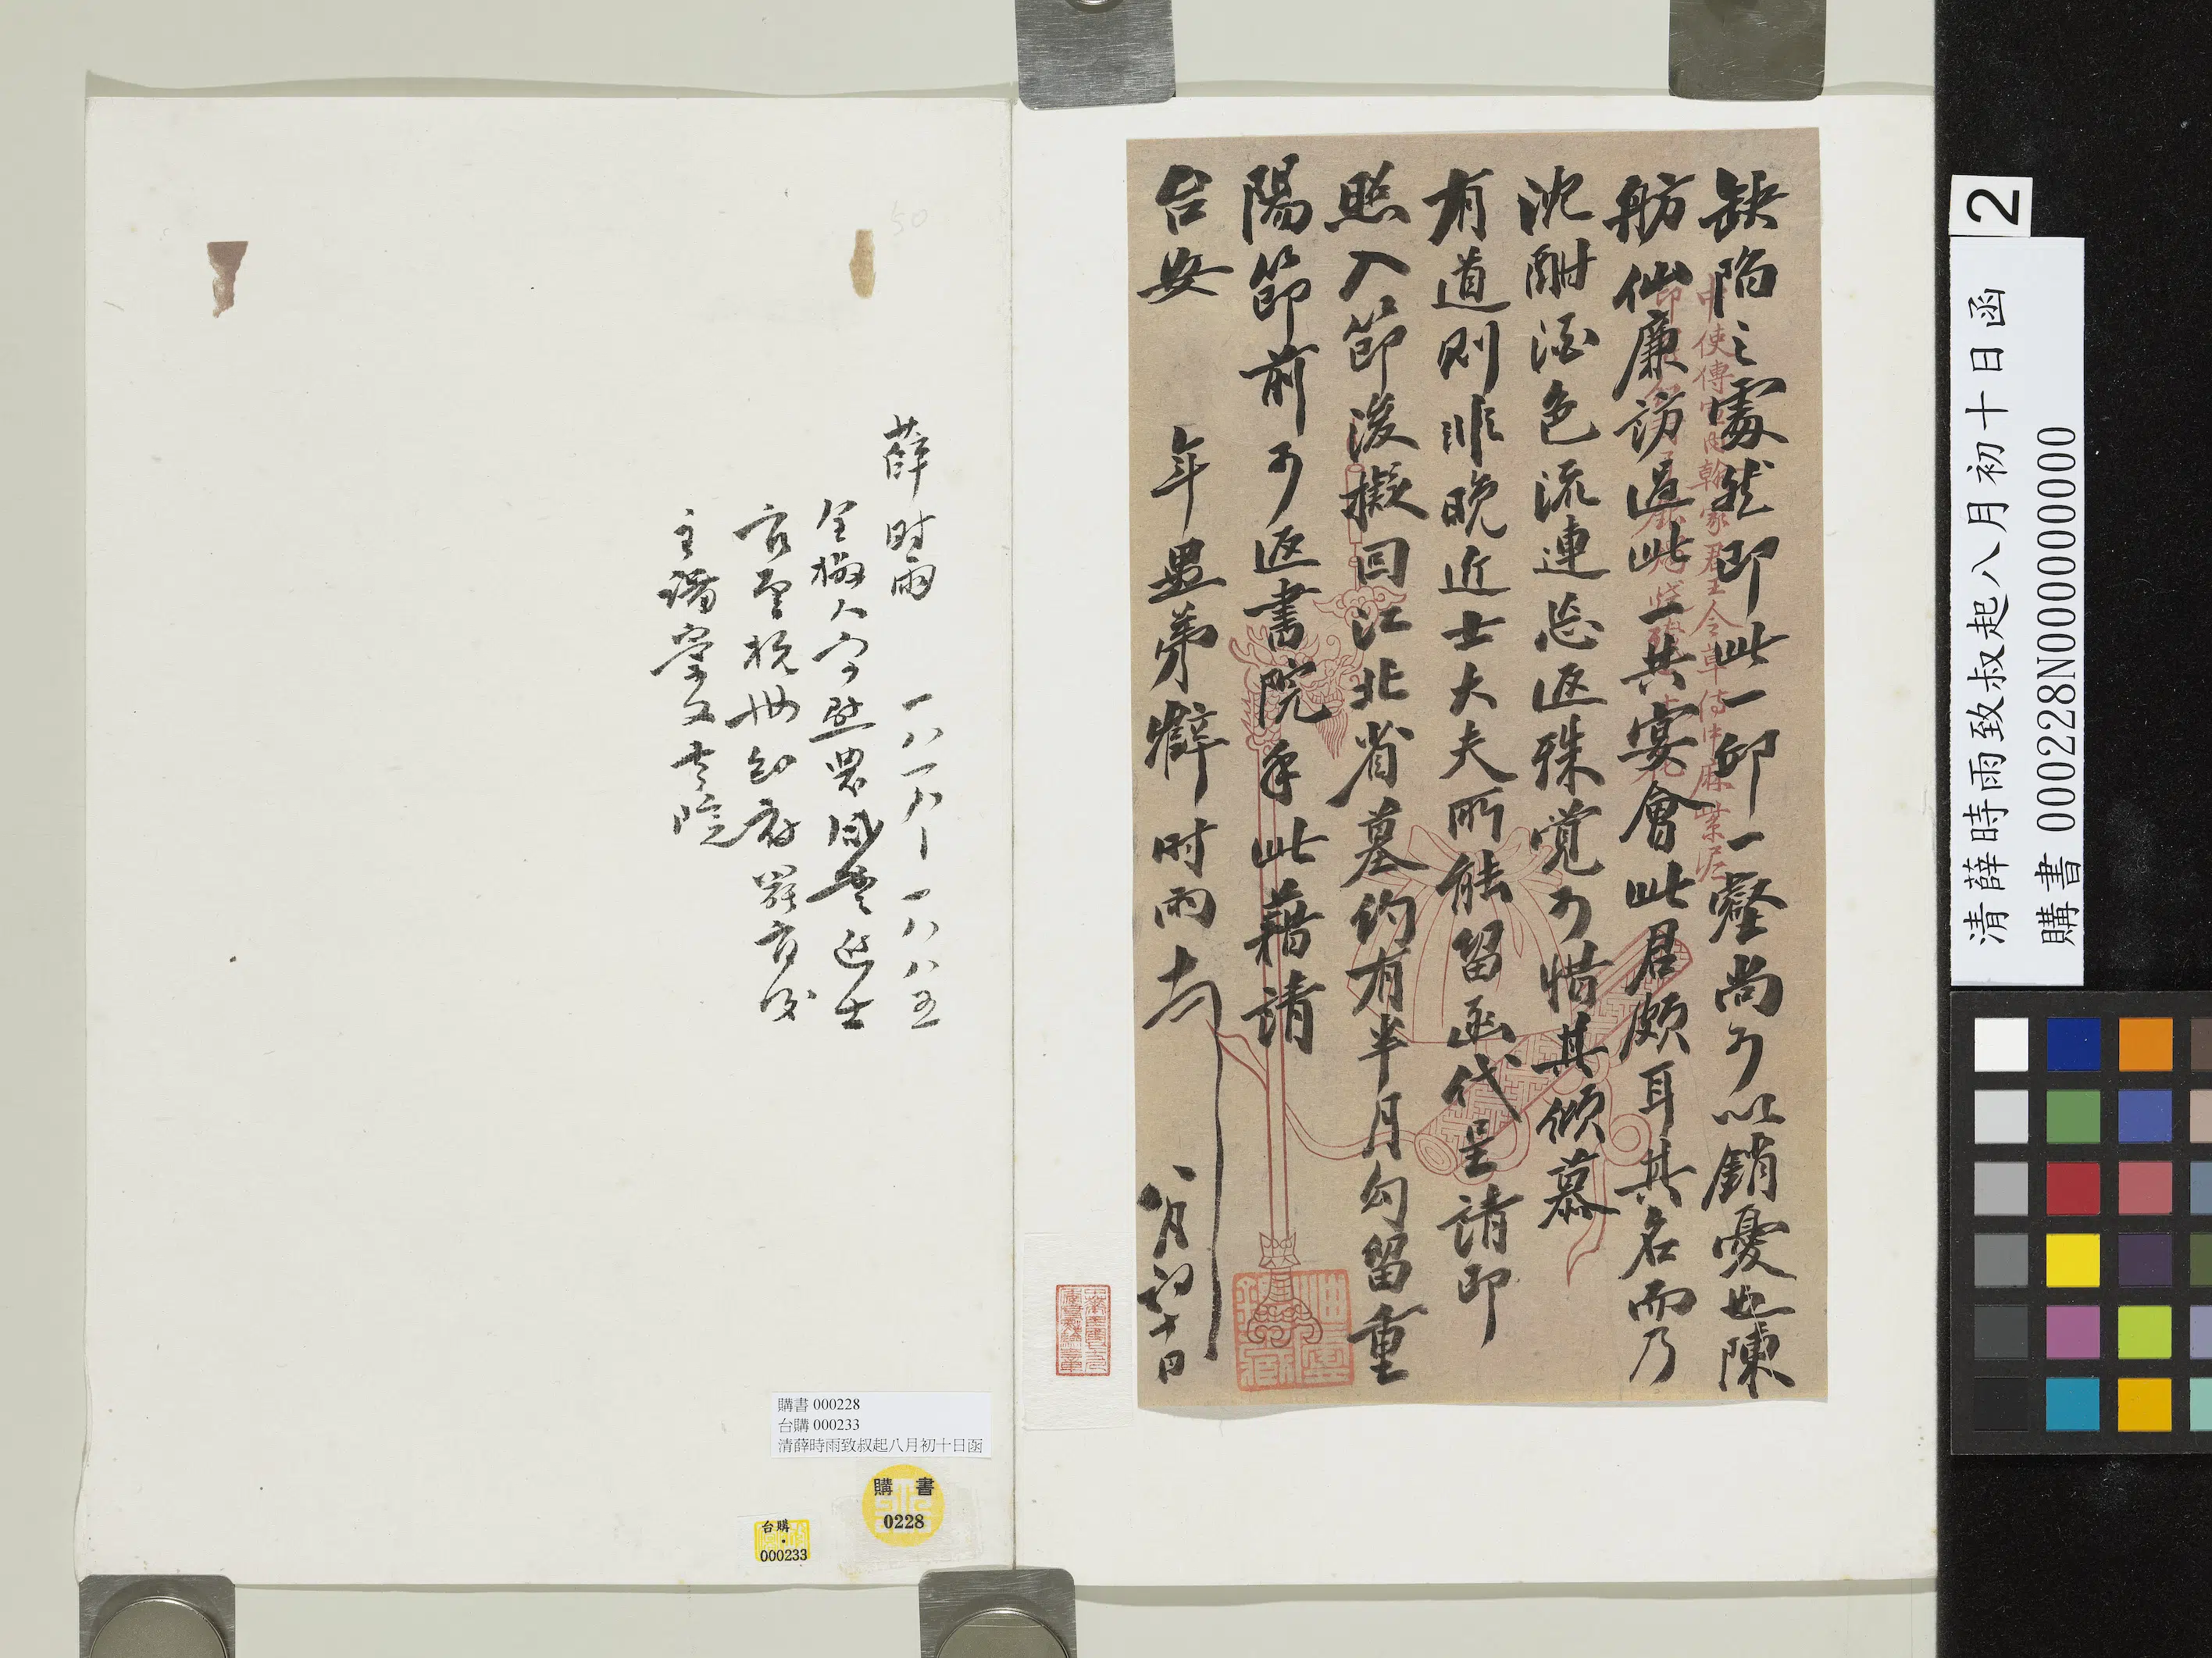 缺陷之處然即此一邱一壑尚可以銷憂也陳
舫仙廉訪過此一共宴會此君頗耳其名而乃
沈酣酒色流連忘返殊覺可惜其傾慕
有道則非晚近士大夫所能留函代呈請即
照入節後擬回江北省墓約有半月勾留重
陽節前可返書院手此藉請
台安
年愚弟薛時雨頓首
八月初十日
薛时雨 一八一八—一八八五
全椒人字慰農咸豐進士
官至杭州知府罷官後
主講崇文書院
購書 000228
台購 000233
清薛時雨致叔起八月初十日函
購書
0228
台購
000233
2
清薛時雨致叔起八月初十日函
購書 000228N000000000